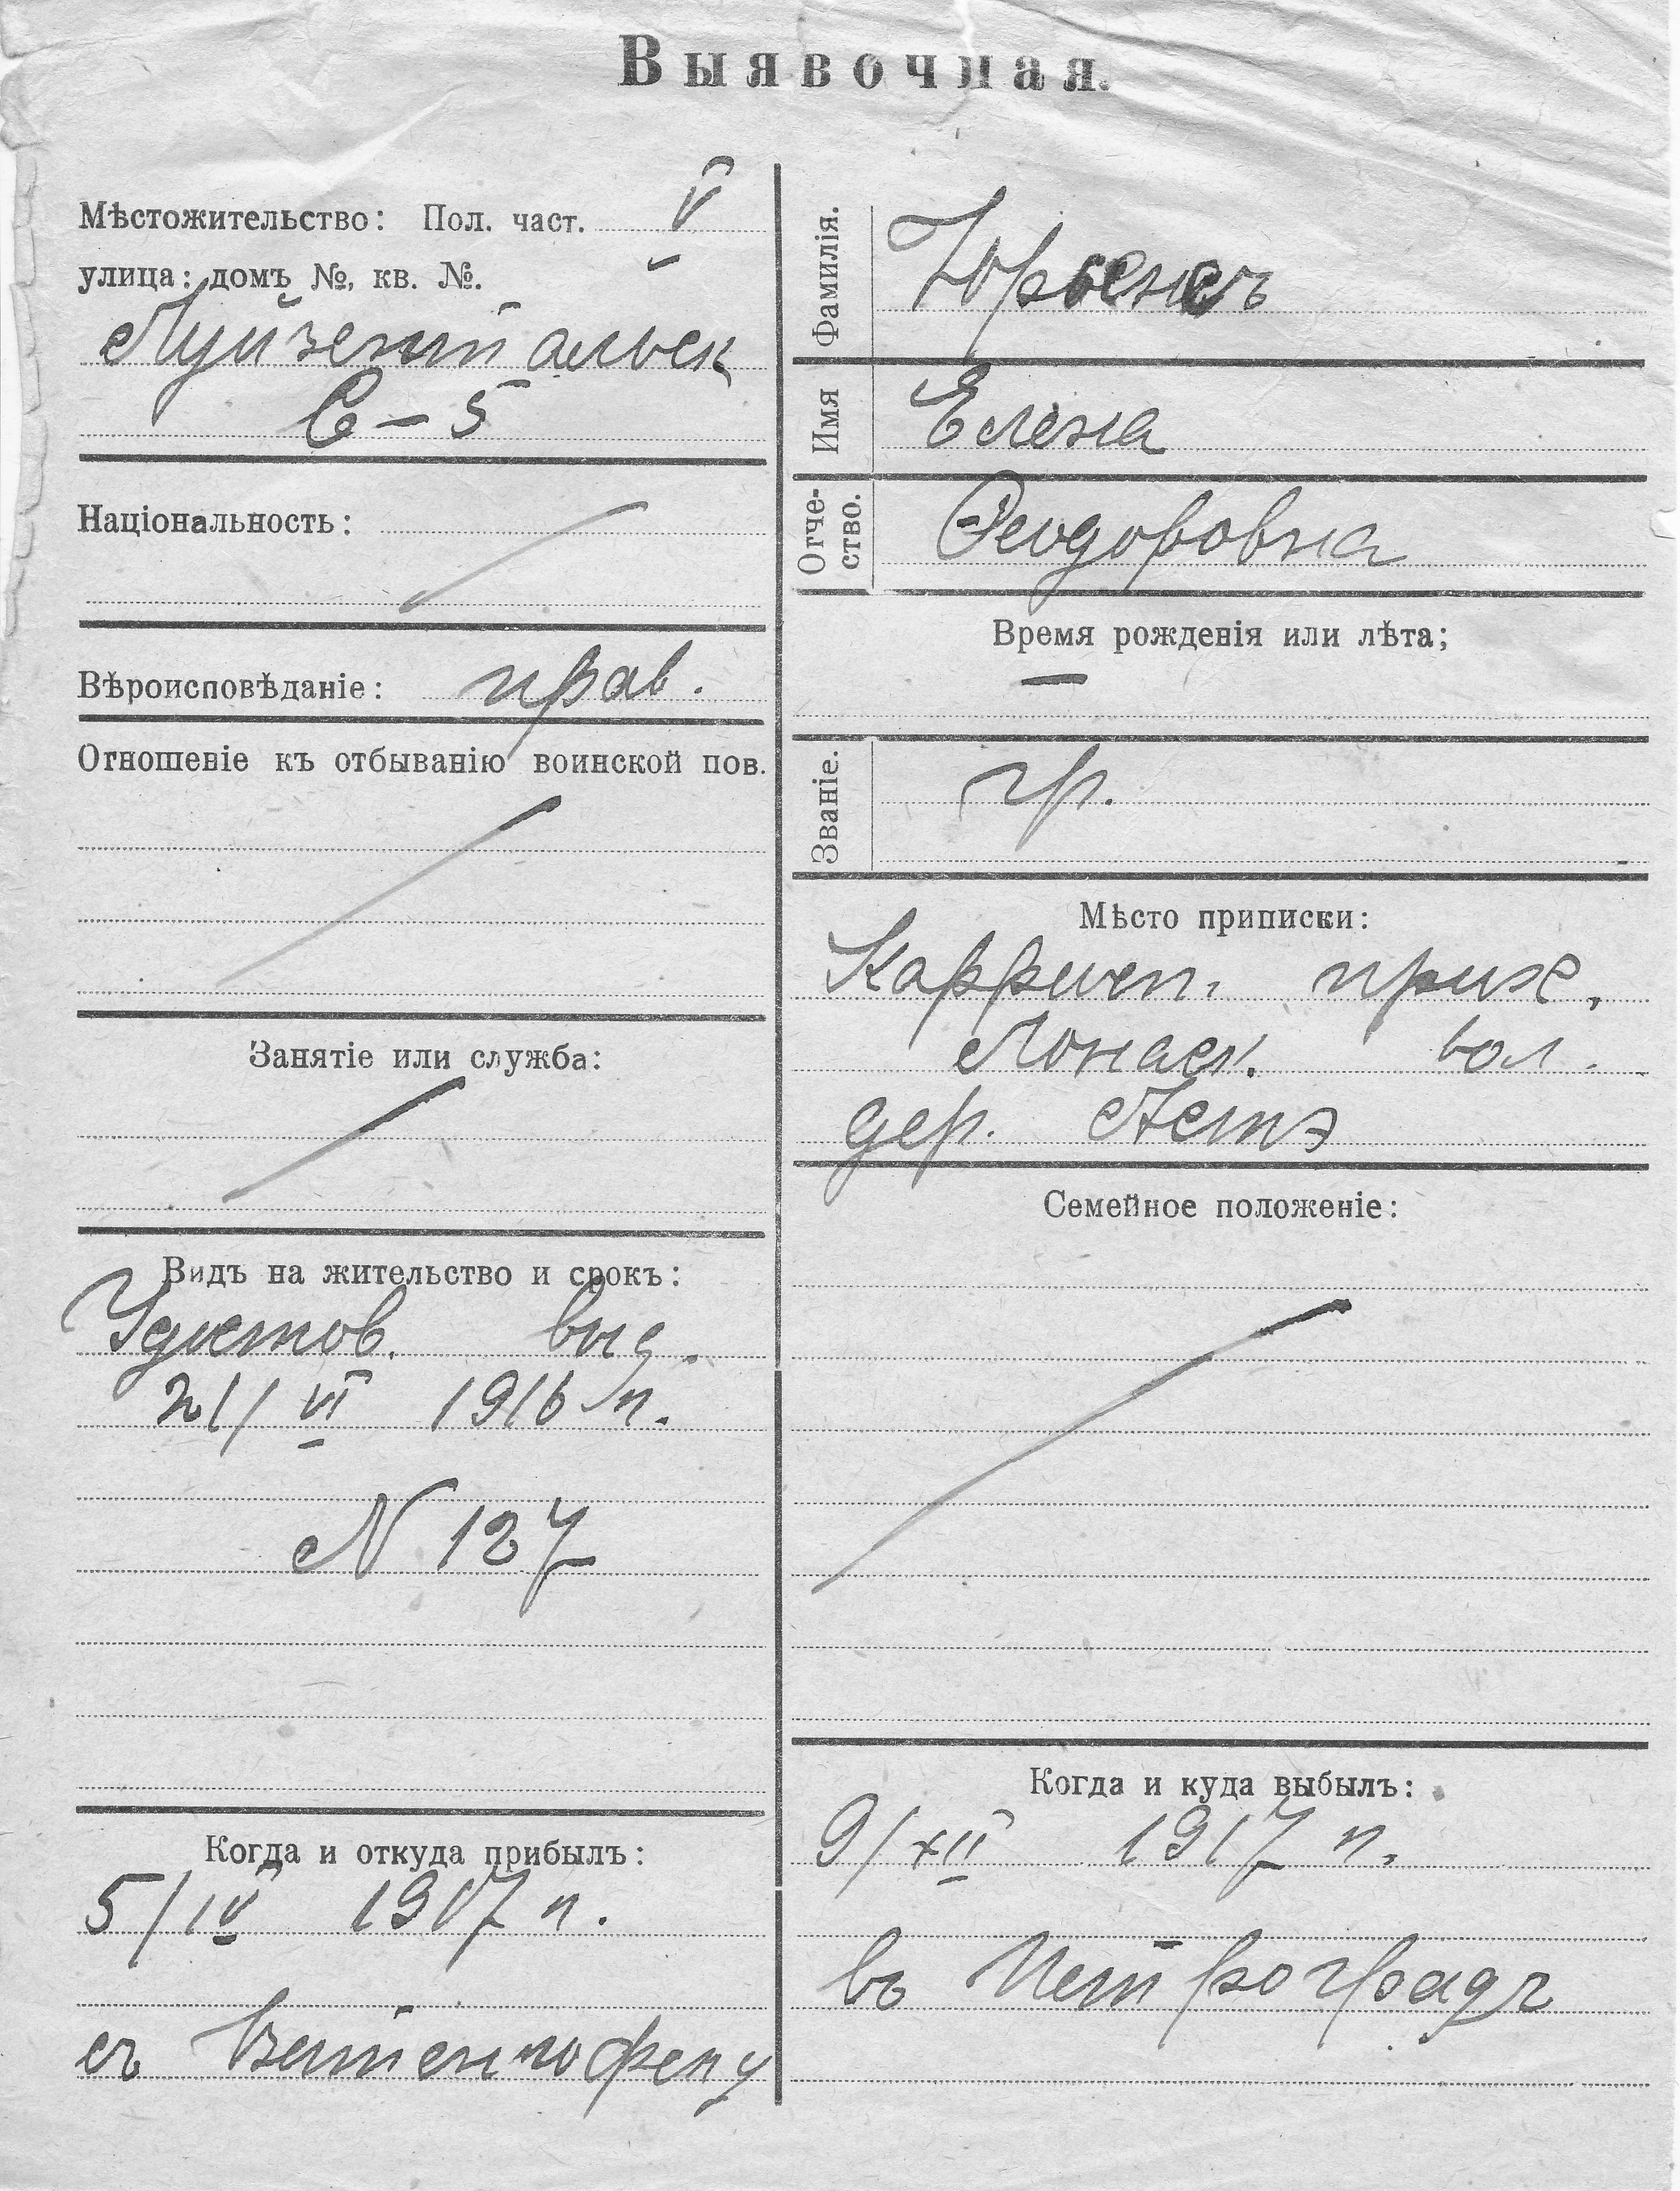 Выявочная.
Мѣстожительство: Пол. част. V
улица: домъ №, кв. №.
Луйзентальск
6 – 5
Національность:
Вѣроисповѣданіе: прав.
Отношеніе къ отбыванію воинской пов.
Занятіе или служба:
Видъ на жительство и срокъ:
Удостов. выд.
21/VI 1916 г.
N 127
Когда и откуда прибылъ:
5/IV 1917 г.
съ
Фамилія. Юрьенсъ
Имя Елена
Отчество. Ѳеодоровна
Время рожденія или лѣта;
—
Званіе. гр.
Мѣсто приписки:
прих.
вол.
дер.
Семейное положеніе:
Когда и куда выбылъ:
9/XII 1917 г.
въ Петроградъ